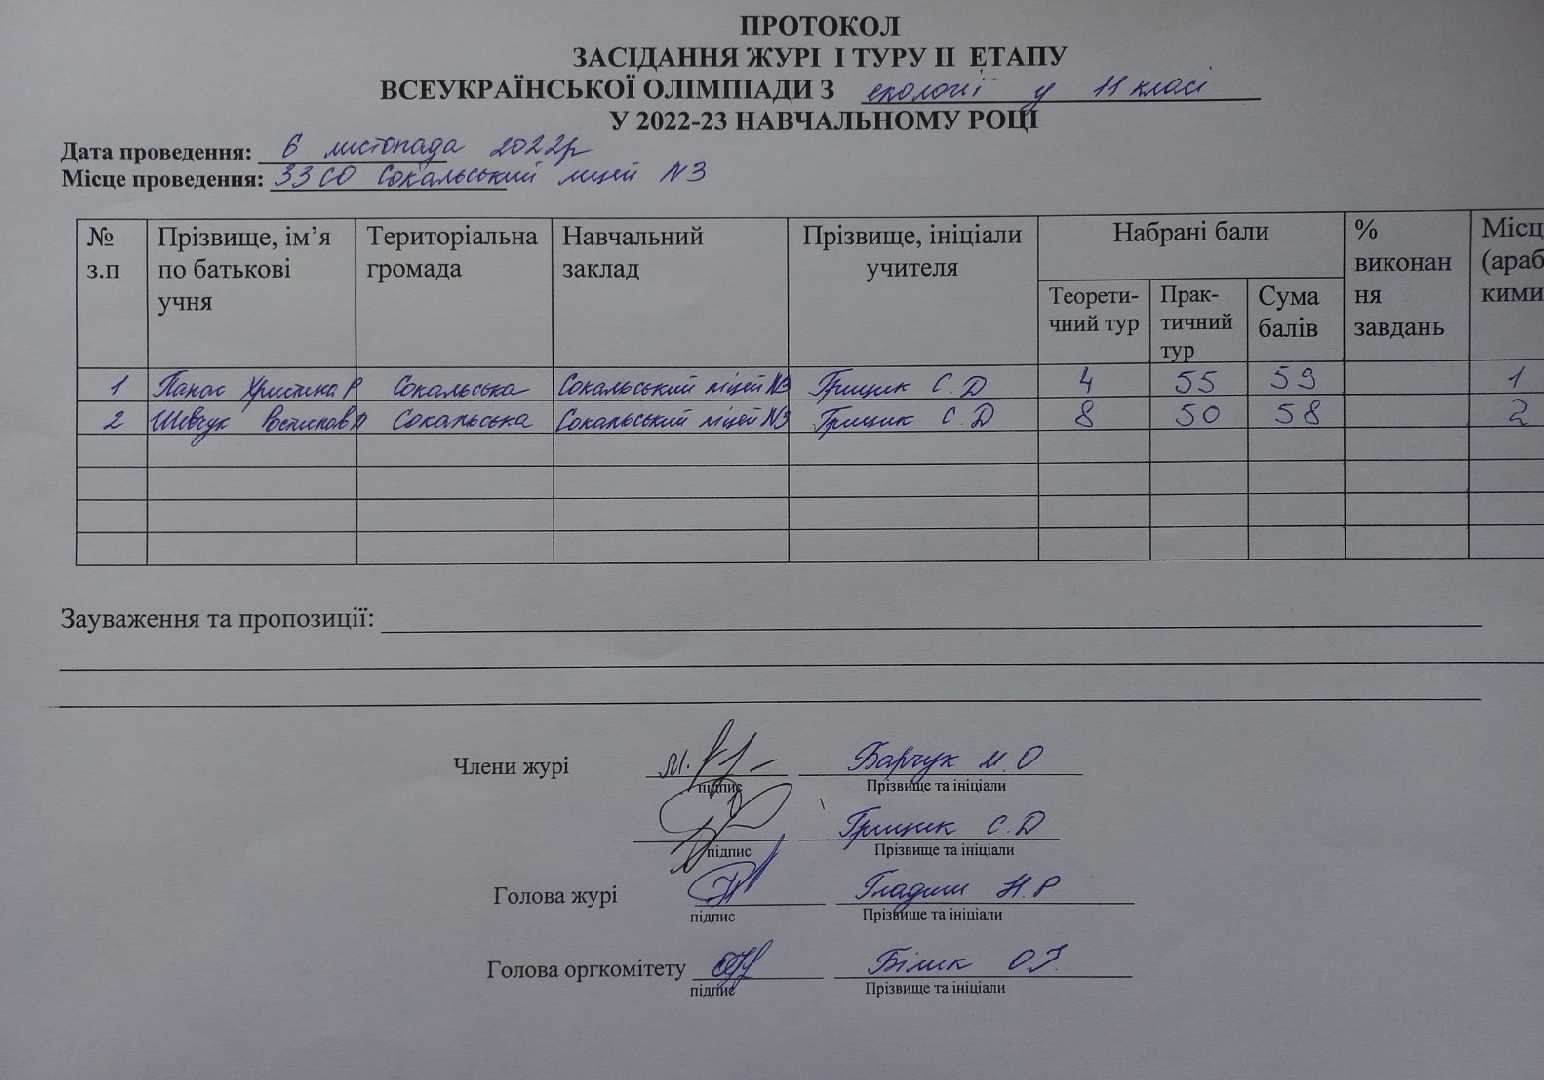 ПРОТОКОЛ
ЗАСІДАННЯ ЖУРІ І ТУРУ ІІ ЕТАПУ
ВСЕУКРАЇНСЬКОЇ ОЛІМПІАДИ З екології у 11 класі
У 2022-23 НАВЧАЛЬНОМУ РОЦІ
Дата проведення: 6 листопада 2022р
Місце проведення: ЗЗСО Сокальський ліцей №3
№ з.п Прізвище, ім’я по батькові учня Територіальна громада Навчальний заклад Прізвище, ініціали учителя Набрані бали Теорети-чний тур Прак-тичний тур Сума балів % виконан ня завдань Місц (араб кими
1 Панас Христина Р Сокальська Сокальський ліцей №3 Грицик С.Д 4 55 59 1
2 Шевчук Сокальська Сокальський ліцей №3 Грицик С.Д 8 50 58 2
Зауваження та пропозиції:
Члени журі Барчук М.О
підпис Прізвище та ініціали
Грицик С.Д
підпис Прізвище та ініціали
Голова журі Гладиш Н.Р
підпис Прізвище та ініціали
Голова оргкомітету Білик О.
підпис Прізвище та ініціали